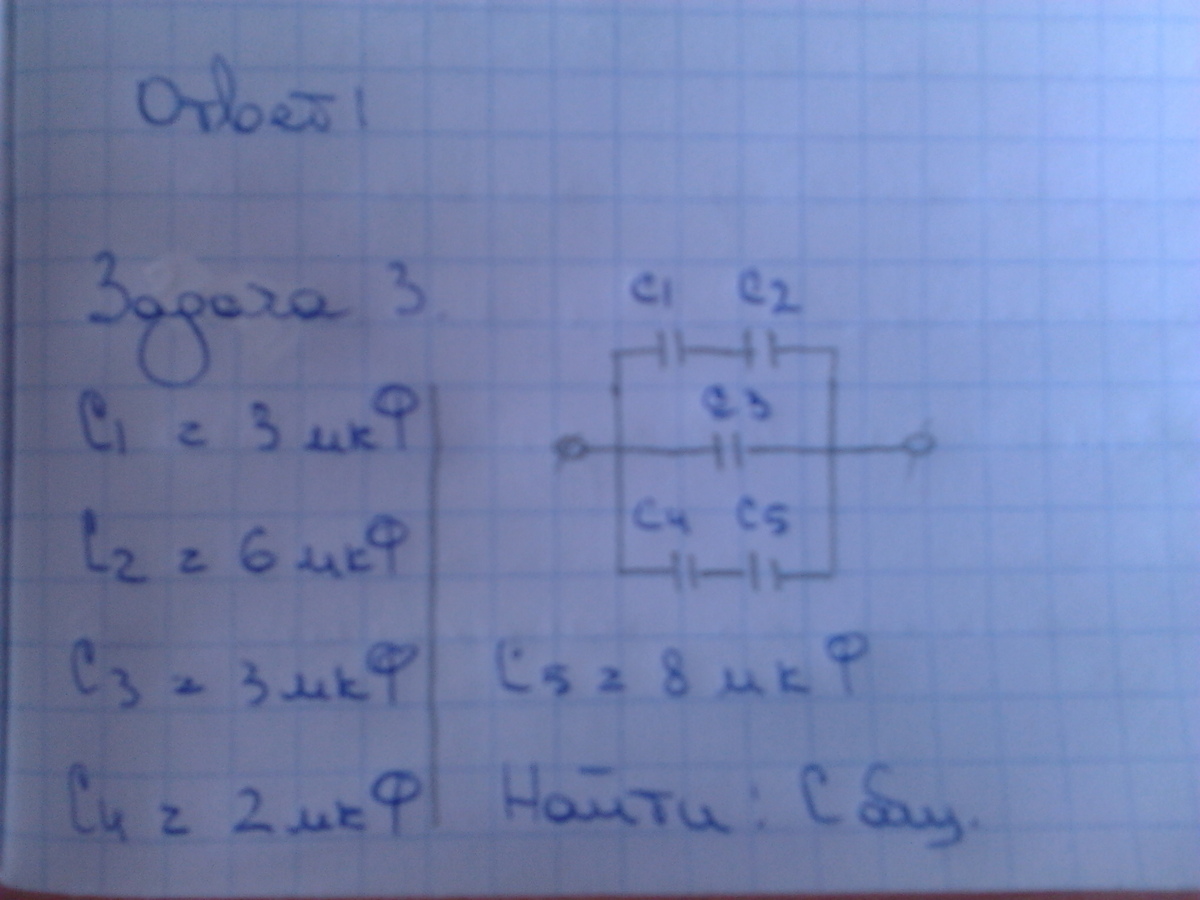 Ответ!
Задача 3.
C1 = 3 мкФ
C2 = 6 мкФ
C3 = 3 мкФ
C4 = 2 мкФ
C1 C2
C3
C4 C5
C5 = 8 мкФ
Найти: C общ.